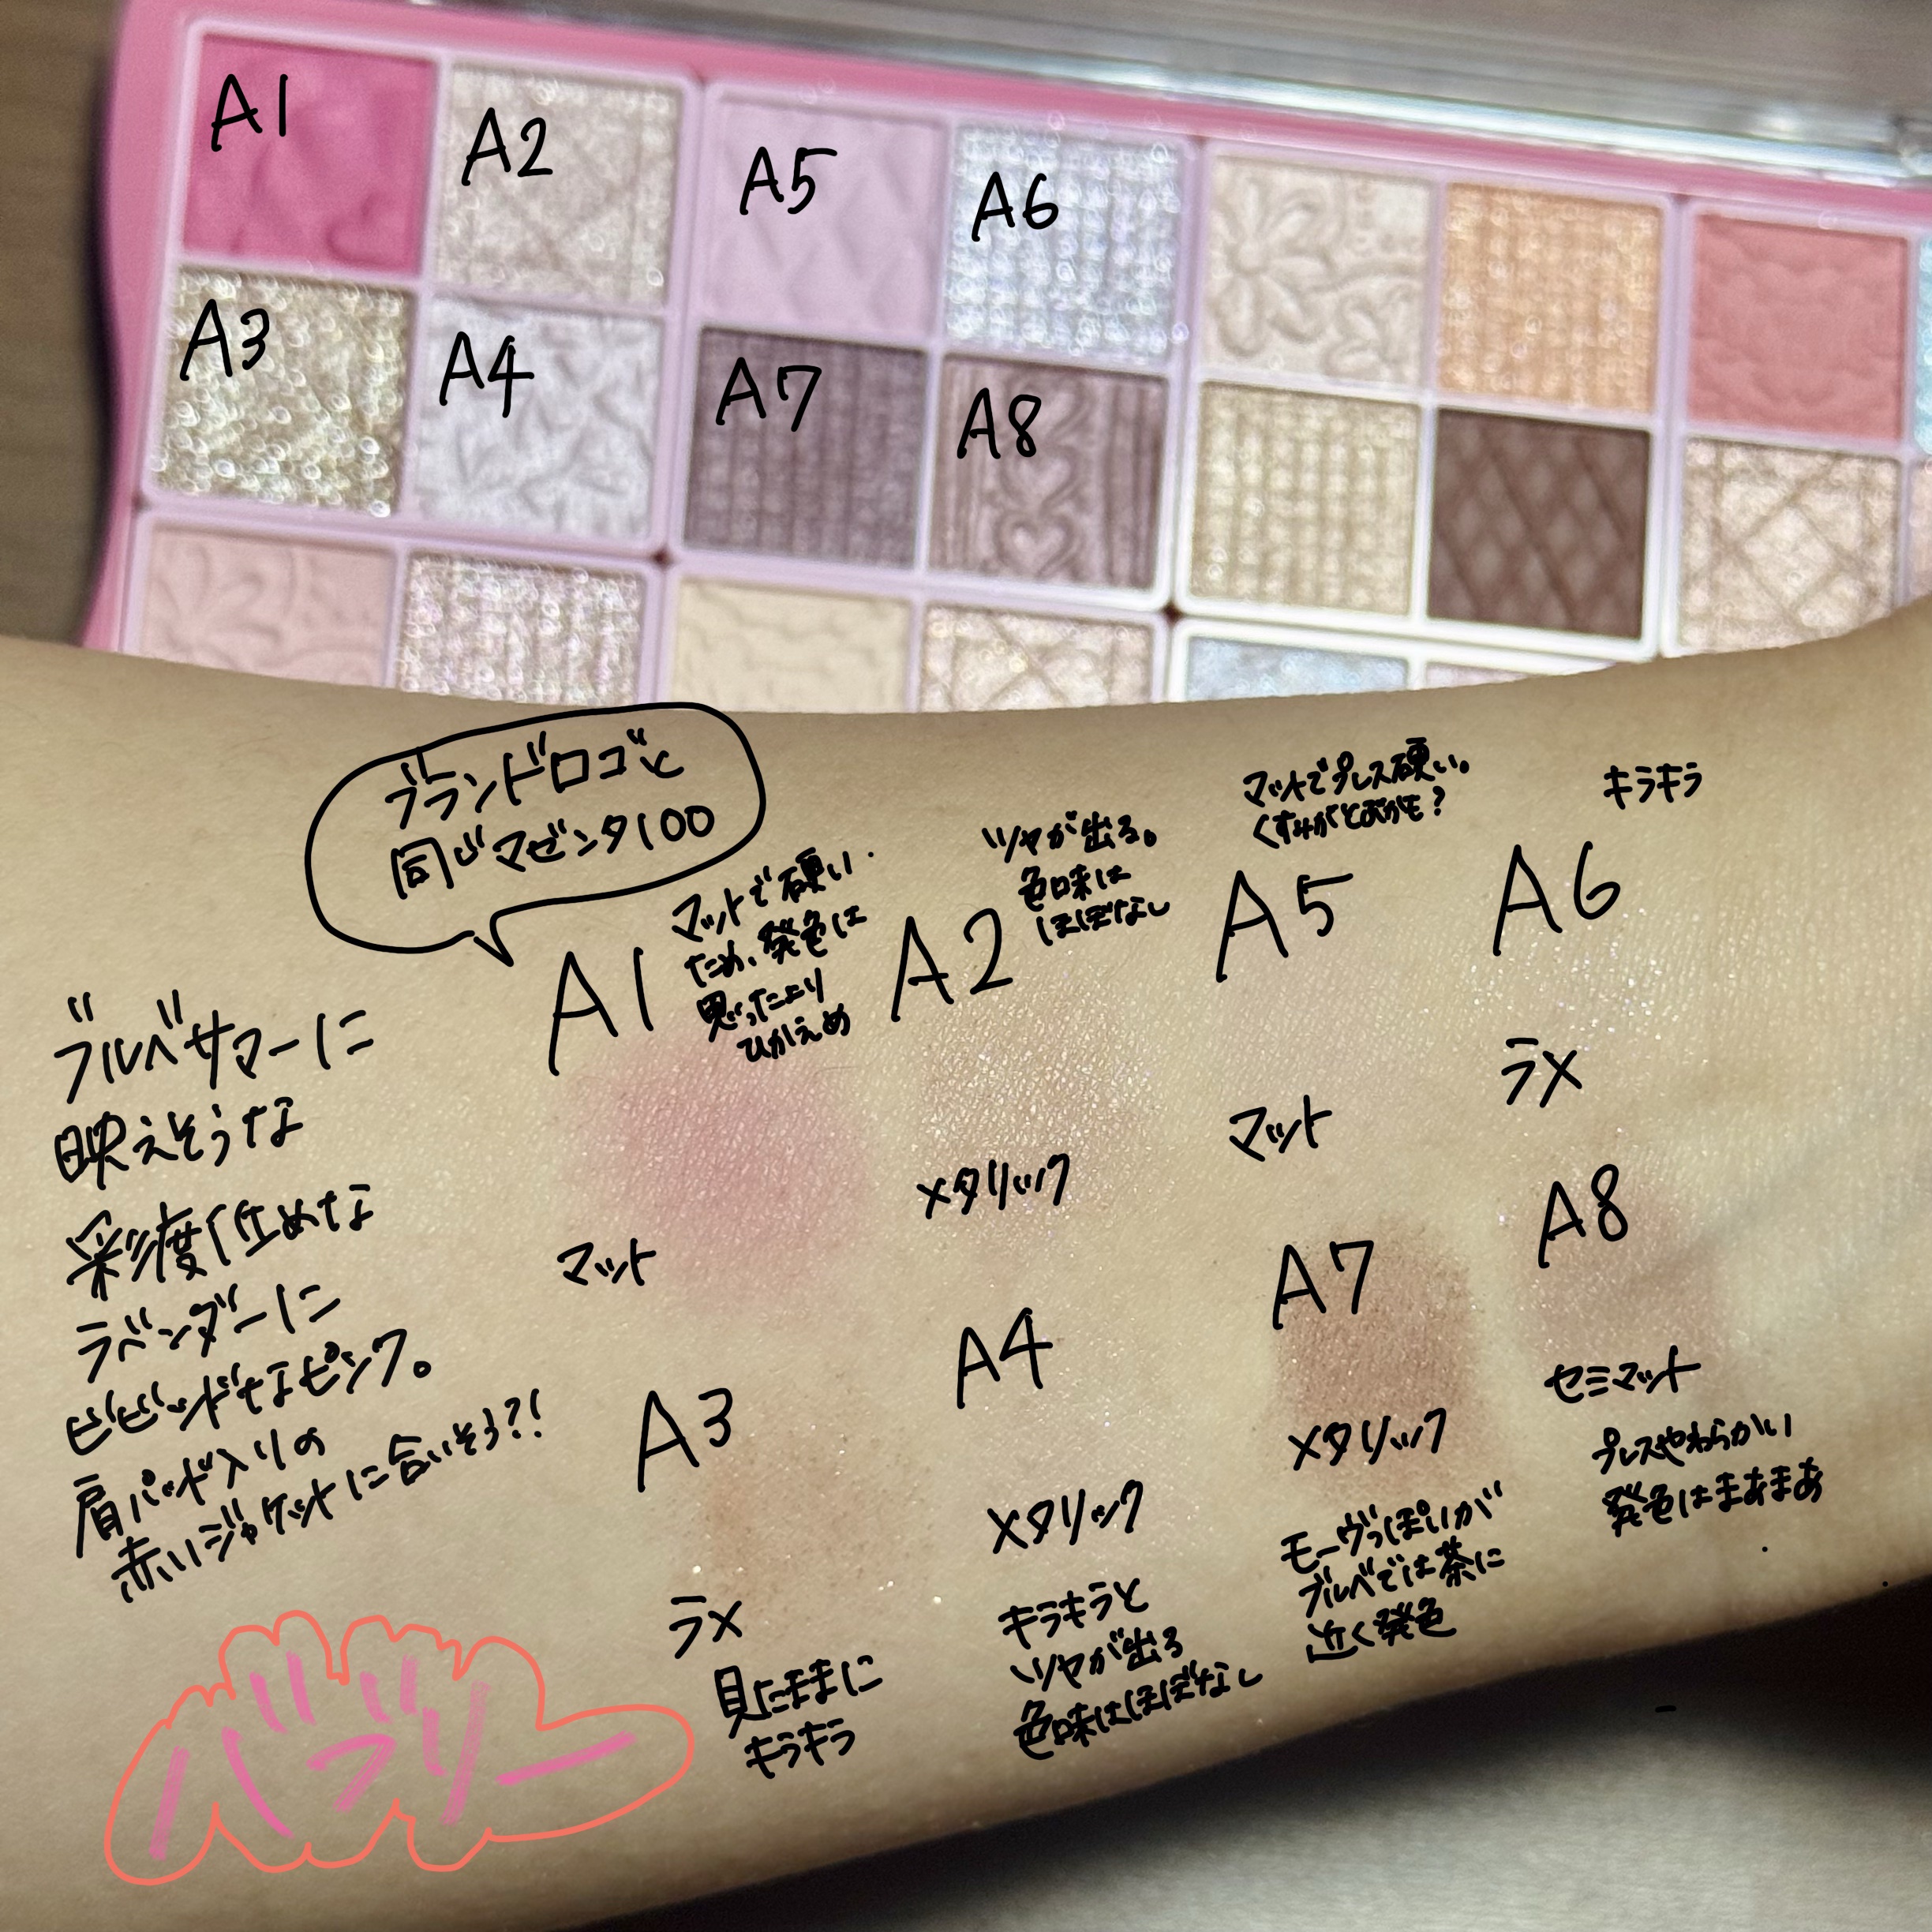 A1
A2
A5
A6
A3
A4
A7
A8
ブランドロゴと
同じマゼンタ100
A1
マットで硬い
ため、発色は
思ったより
ひかえめ
マット
A2
ツヤが出る。
色味は
ほぼなし
メタリック
A5
マットでプレス硬い。
くすみがとぶかも?
マット
A6
キラキラ
ラメ
ブルベサマーに
映えそうな
彩度低めな
ラベンダーに
ビビッドなピンク。
肩パッド入りの
赤いジャケットに合いそう?!
A3
ラメ
見たままに
キラキラ
A4
メタリック
キラキラと
ツヤが出る
色味はほぼなし
A7
メタリック
モーヴっぽいが
ブルベでは茶に
近く発色
A8
セミマット
プレスやわらかい
発色はまあまあ
バブリー